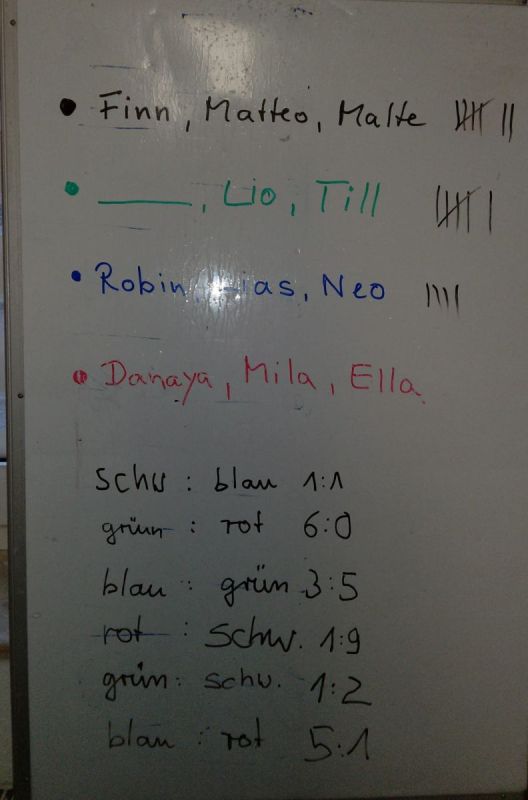 • Finn, Matteo, Malte 𝍸 ||
• ____, Lio, Till 𝍸 |
• Robin, Neo ||||
• Danaya, Mila, Ella
schw : blau 1:1
grün : rot 6:0
blau : grün 3:5
rot : schw. 1:9
grün : schw. 1:2
blau : rot 5:1